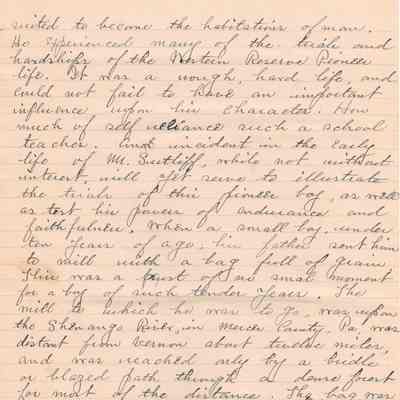 suited to become the habitations of man.
He experienced many of the trials and
hardships of the Western Reserve Pioneer
life. It was a rough, hard life, and
could not fail to have an important
influence upon his character. How
much of self reliance such a school
teaches. And incident in the early
life of Mr. Sutliff, while not without
interest, will yet serve to illustrate
the trials of this pioneer boy, as well
as test his powers of endurance and
faithfulness. When a small boy, under
ten years of age, his father sent him
to mill with a bag full of grain
This was a trust of no small moment
for a boy of such tender years. The
mill to which he was to go, was upon
the Shenango River, in Mercer County, Pa, was
distant from Vernon about twelve miles,
and was reached only by a bridle
or blazed path through a dense forest
for most of the distance. The bag was